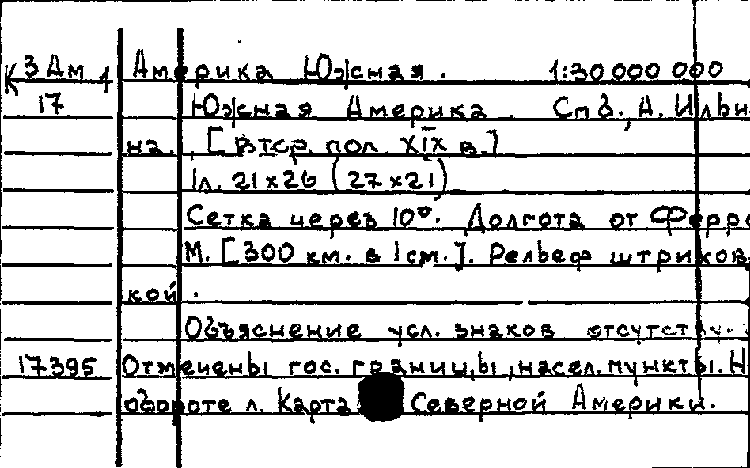 К 3 Ам 1 Америка Южная. 1:30 000 000
17 Южная Америка. Спб., А. Ильи
на. [втор. пол. XIX в.]
1 л. 21х26 (27х21)
Сетка через 10°. Долгота от Ферро
М. [300 км. в 1 см.]. Рельеф штриков
кой.
Объяснение усл. знаков отсутств.
17395 Отмечены гос. границы, насел. пункты. Н
обороте л. Карта Северной Америки.